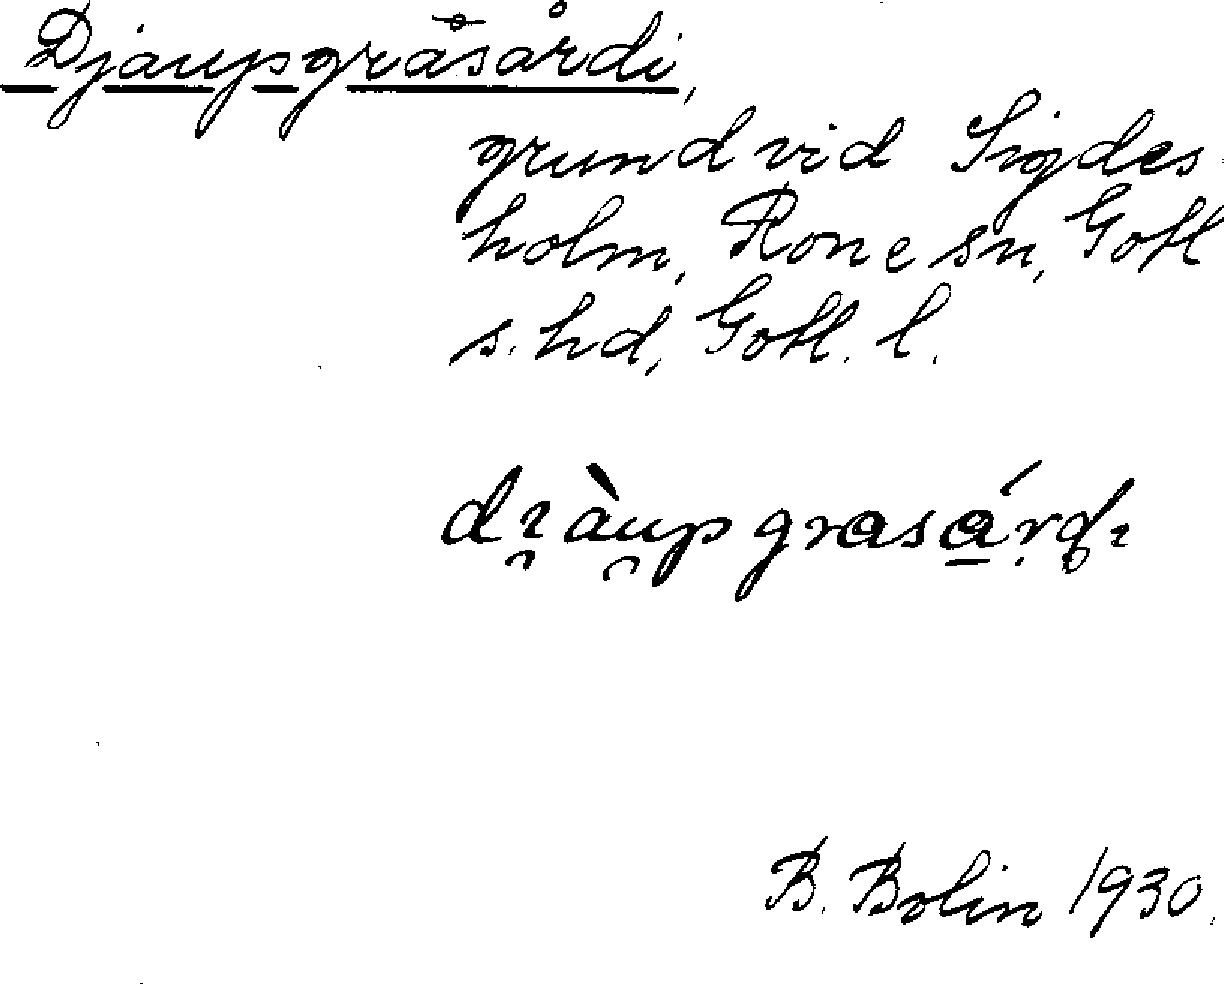 Djaupgrasårdi,
grund vid Sigdes-
holm, Rone sn, Gotl
s. hd, Gotl. l.
dı̯àu̯pgrasá̱rdı
B. Bolin 1930.